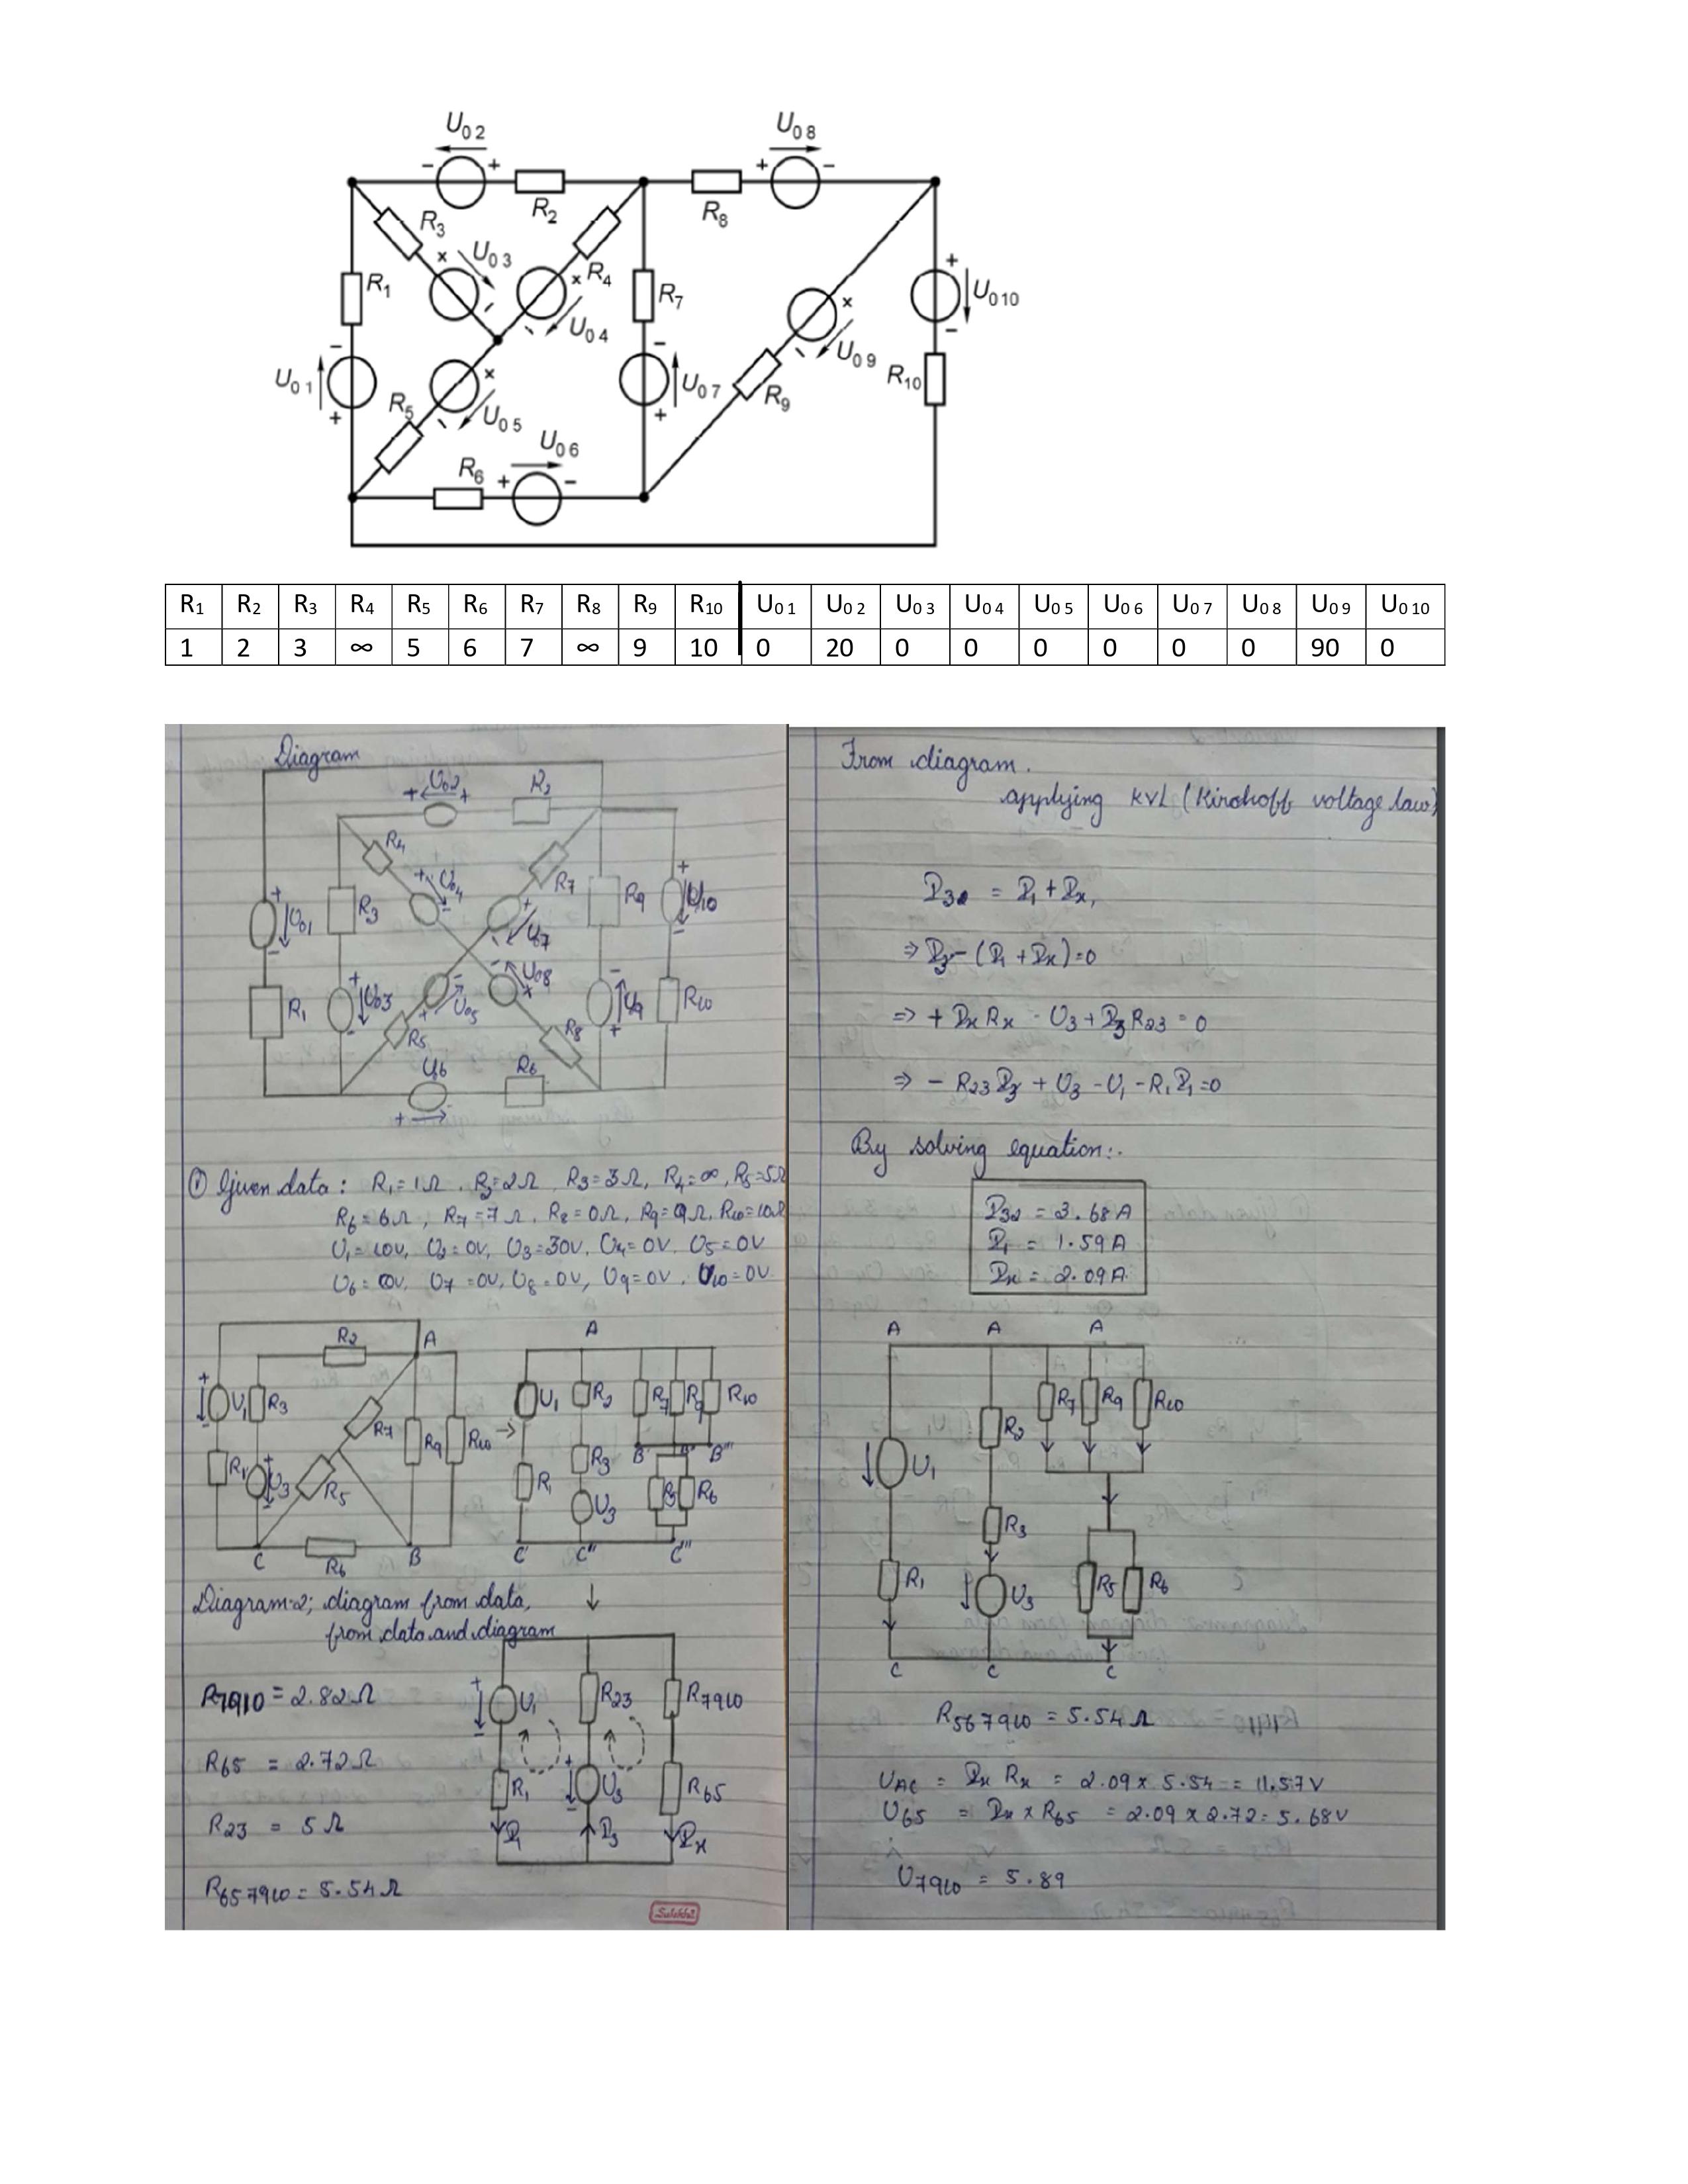 U02 U08
- + + -
R3 R2 R8
U03 R4
R1 R7 U010
U04
U01 U07 U09 R10
R5 R9
U05
U06
R6 + -
R1 R2 R3 R4 R5 R6 R7 R8 R9 R10 U01 U02 U03 U04 U05 U06 U07 U08 U09 U010
1 2 3 ∞ 5 6 7 ∞ 9 10 0 20 0 0 0 0 0 0 90 0
Diagram
U02 R2
R4
U04 R7
U01 R3 R9 U10
U7
U08
R1 U03 U05 U9 R10
R5 R8
U6 R6
① Given data : R1=1Ω, R2=2Ω, R3=3Ω, R4=∞, R5=5Ω
R6=6Ω, R7=7Ω, R8=0Ω, R9=9Ω, R10=10Ω
U1=10V, U2=0V, U3=30V, U4=0V, U5=0V
U6=0V, U7=0V, U8=0V, U9=0V, U10=0V.
R2 A A
U1 R3 R7 R9 R10 → U1 R2 R7 R9 R10
B' B'' B'''
R1 U3 R5 R1 R3 U3 R5 R6
C R6 B C' C'' C'''
Diagram-2; diagram from data, ↓
from data and diagram
R7910 = 2.82Ω
R65 = 2.72Ω
R23 = 5Ω
R657910 = 5.54Ω
U1 R23 R7910
R1 U3 R65
I1 I3 Ix
Sulekha
From diagram.
applying KVL (Kirchoff voltage law)
I32 = I1 + Ix,
⇒ I3 - (I1 + Ix) = 0
⇒ + Ix Rx - U3 + I3 R23 = 0
⇒ - R23 I3 + U3 - U1 - R1 I1 = 0
By solving equation:.
I32 = 3.68A
I1 = 1.59A
Ix = 2.09A.
A A A
U1 R2 R7 R9 R10
R1 R3 U3 R5 R6
C C C
R567910 = 5.54Ω
UAC = Ix Rx = 2.09 x 5.54 = 11.57V
U65 = Ix x R65 = 2.09 x 2.72 = 5.68V
U7910 = 5.89